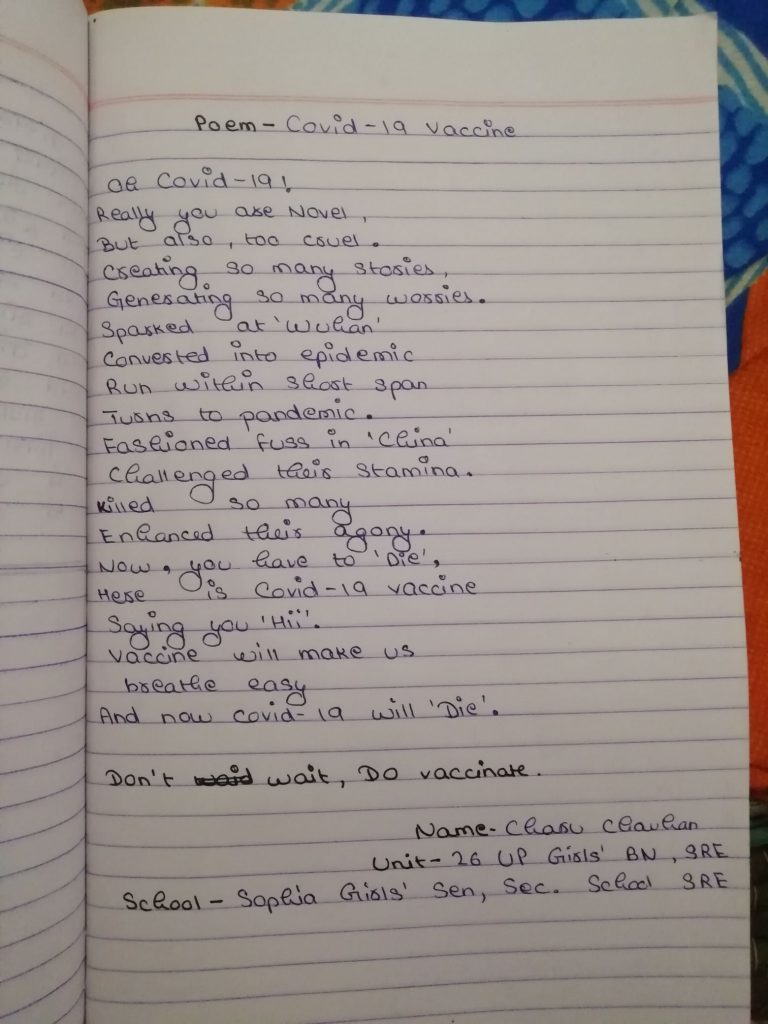 Poem - Covid-19 vaccine
Oh Covid-19!
Really you are Novel,
But also, too cruel.
Creating so many stories,
Generating so many worries.
Sparked at 'Wuhan'
Converted into epidemic
Run within short span
Turns to pandemic.
Fashioned fuss in 'China'
Challenged their stamina.
Killed so many
Enhanced their agony.
Now, you have to 'Die',
Here is Covid-19 vaccine
Saying you 'Hii'.
Vaccine will make us
breathe easy
And now covid-19 will 'Die'.
Don't wait, Do vaccinate.
Name- Charu Chauhan
Unit- 26 UP Girls' BN, SRE
School - Sophia Girls' Sen, Sec. School SRE